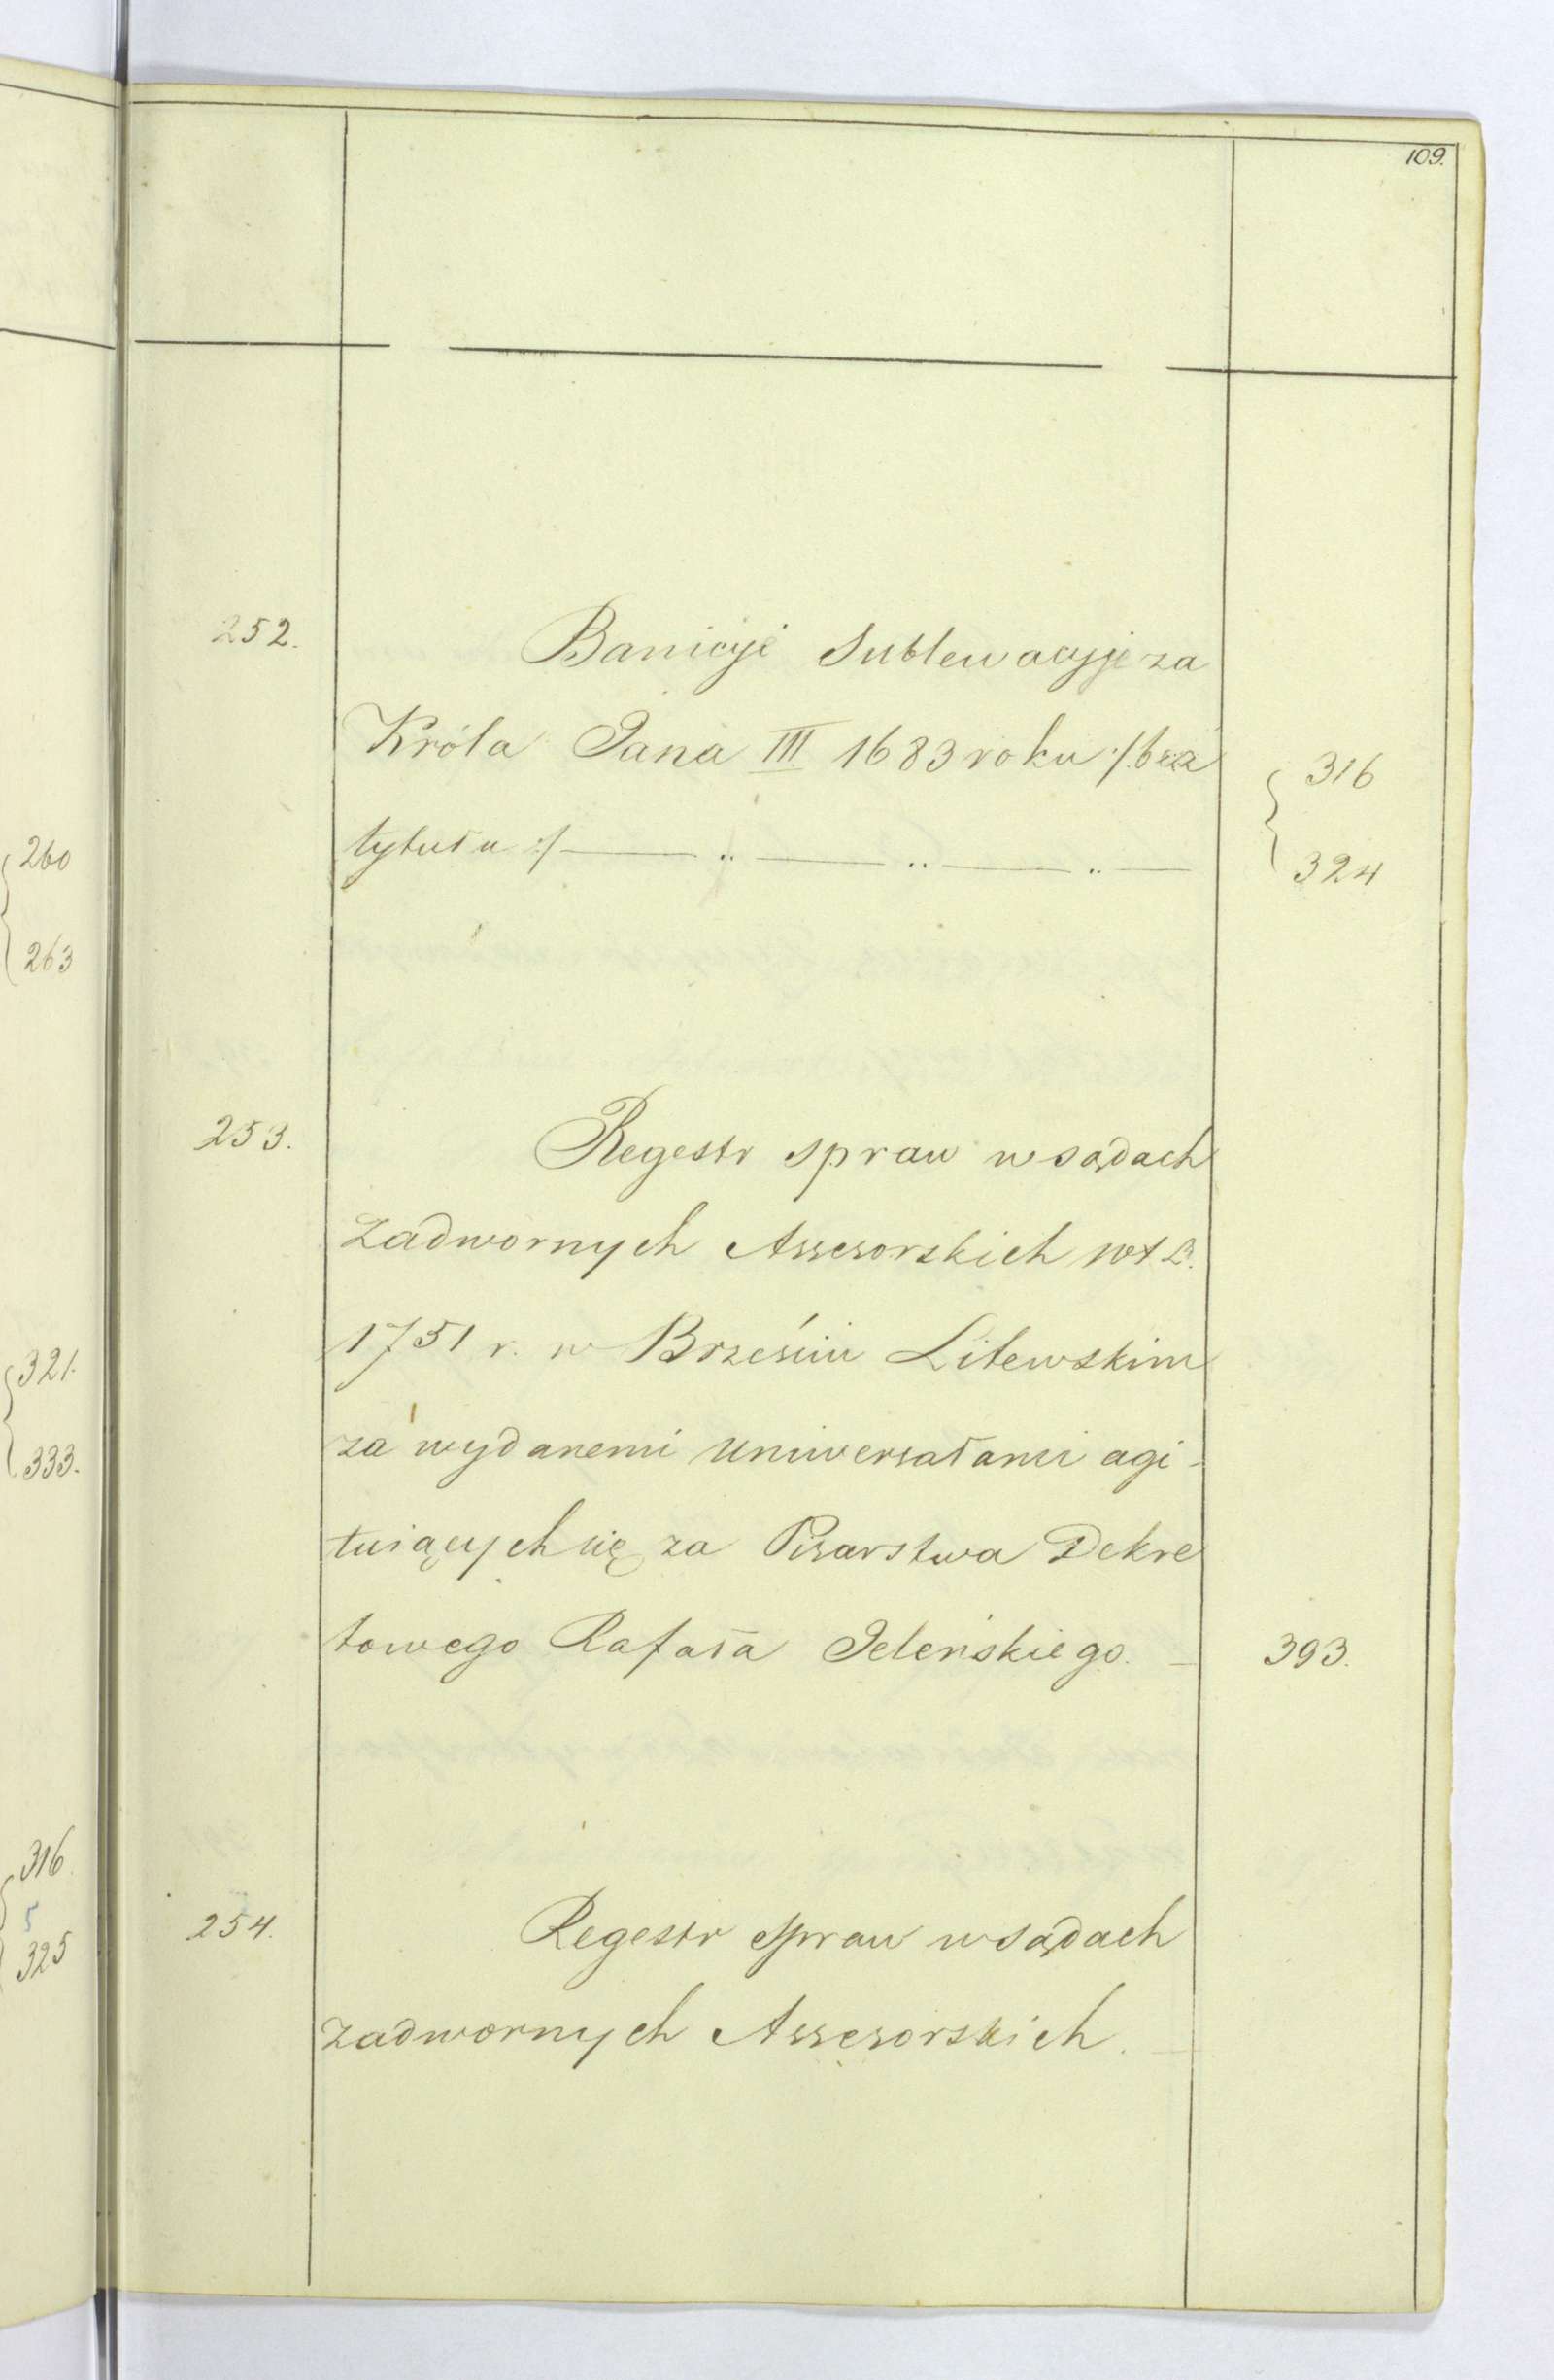 109.
252. Banicyje Sublewacyje za
Króla Jana III 1683 roku :/bez 316
tytułu :/ — „ — „ — „ — 324
253. Regestr spraw w sądach
Zadwornych Assesorskich
1751 r. w Brześciu Litewskim
za wydanemi Uniwersałami agi-
tuiących się za Pisarstwa Dekre
towego Rafała Jeleńskiego. — 393.
254. Regestr spraw w sądach
zadwornych Assesorskich. —
260
263
321.
333.
316.
5
325